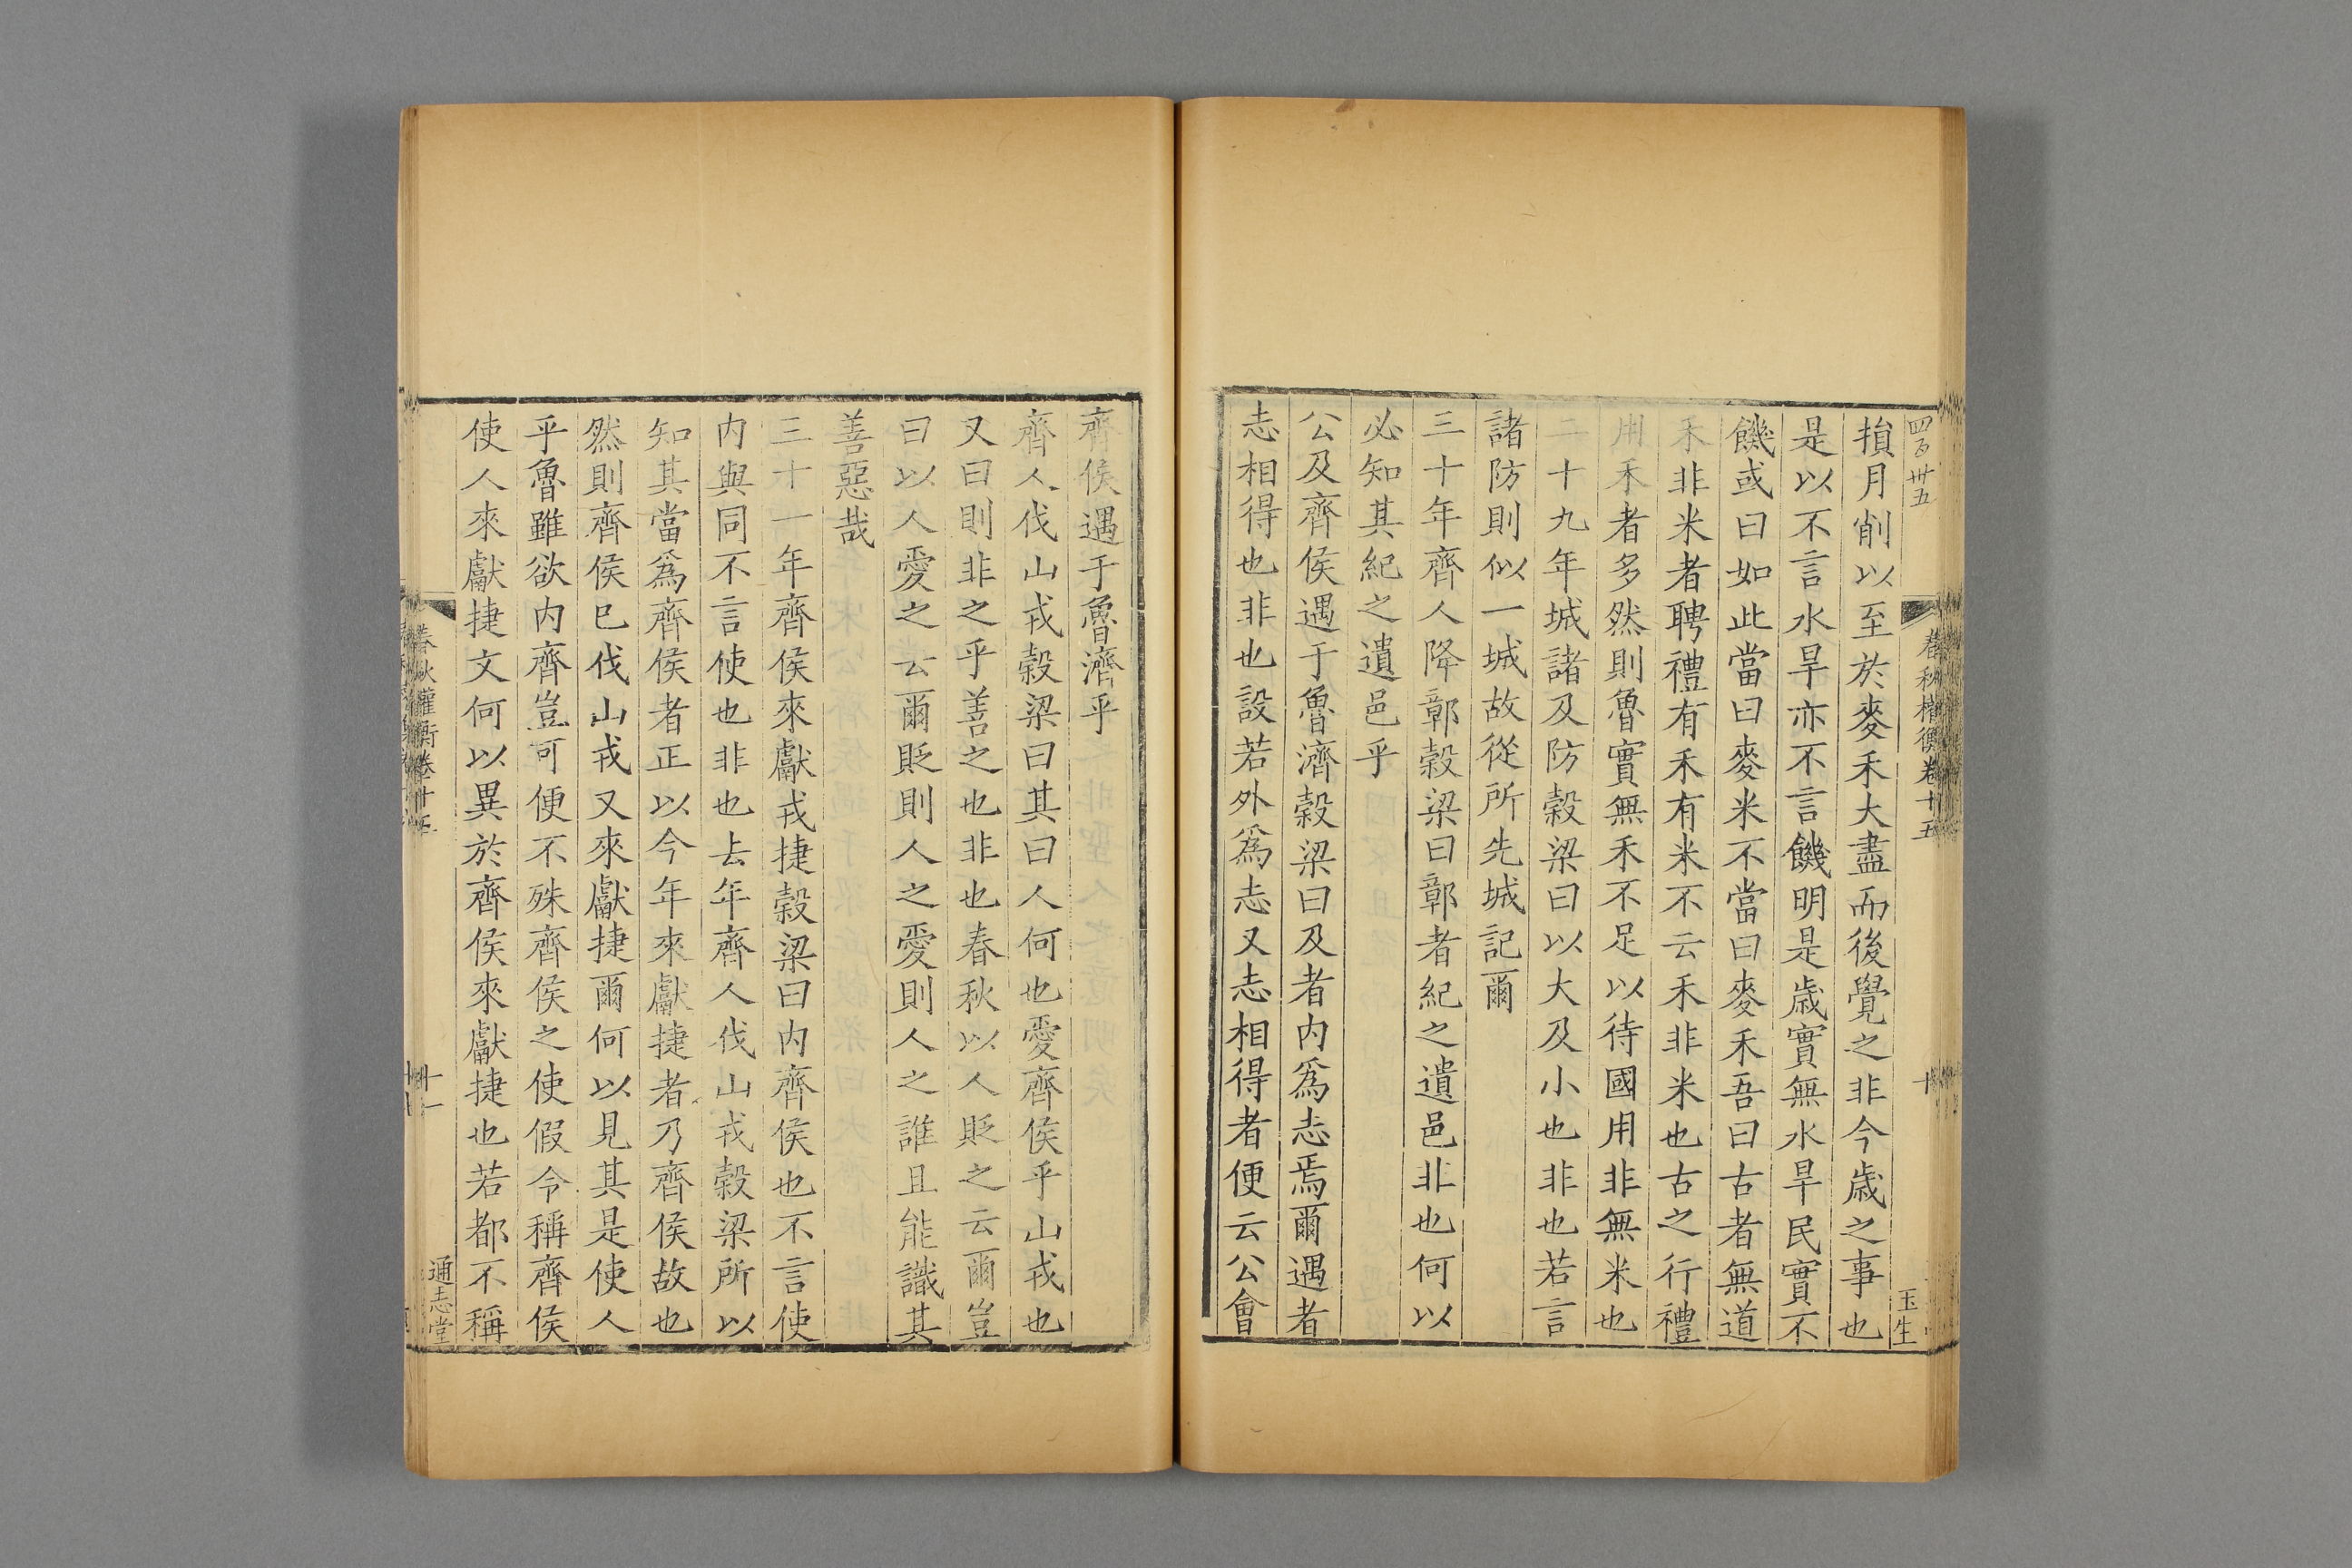 四百卅五
春秋權衡卷十五
十
玉生
損月削以至於麥禾大盡而後覺之非今歲之事也
是以不言水旱亦不言饑明是歲實無水旱民實不
饑或曰如此當曰麥米不當曰麥禾吾曰古者無道
禾非米者聘禮有禾有米不云禾非米也古之行禮
用禾者多然則魯實無禾不足以待國用非無米也
二十九年城諸及防穀梁曰以大及小也非也若言
諸防則似一城故從所先城記爾
三十年齊人降鄣穀梁曰鄣者紀之遺邑非也何以
必知其紀之遺邑乎
公及齊侯遇于魯濟穀梁曰及者內為志焉爾遇者
志相得也非也設若外為志又志相得者便云公會
齊侯遇于魯濟乎
齊人伐山戎穀梁曰其曰人何也愛齊侯乎山戎也
又曰則非之乎善之也非也春秋以人貶之云爾豈
曰以人愛之云爾貶則人之愛則人之誰且能識其
善惡哉
三十一年齊侯來獻戎捷穀梁曰內齊侯也不言使
內與同不言使也非也去年齊人伐山戎穀梁所以
知其當為齊侯者正以今年來獻捷者乃齊侯故也
然則齊侯巳伐山戎又來獻捷爾何以見其是使人
乎魯雖欲內齊豈可便不殊齊侯之使假令稱齊侯
使人來獻捷文何以異於齊侯來獻捷也若都不稱
春秋權衡卷十五
十一
通志堂